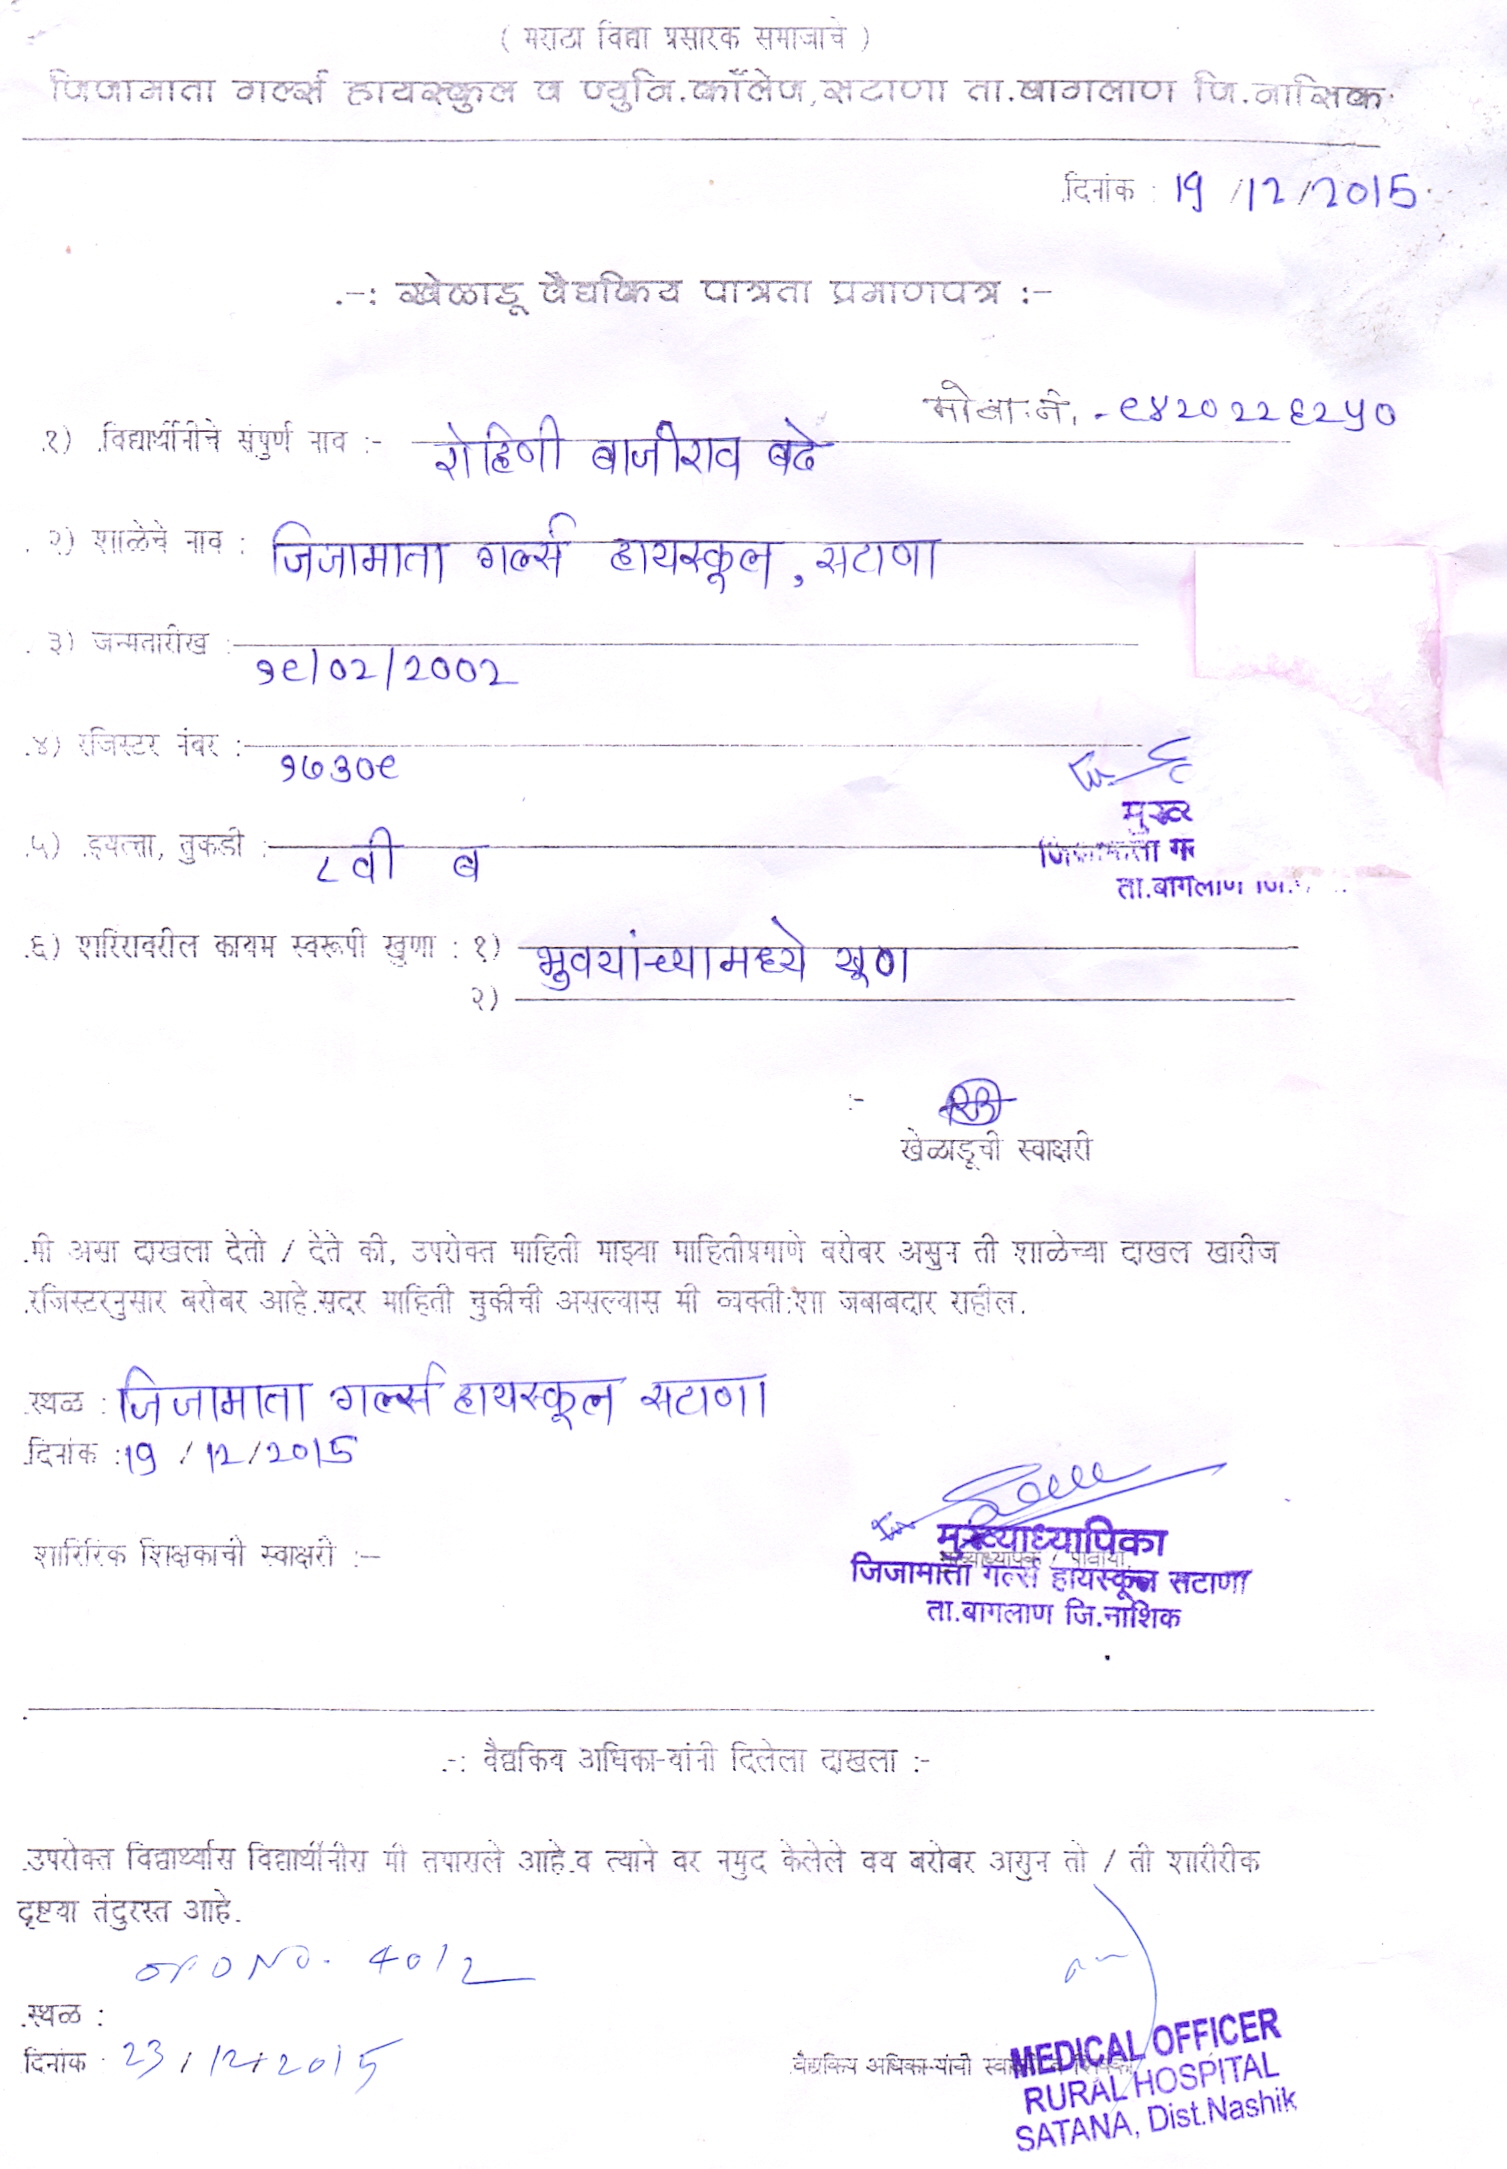 ( मराठा विद्या प्रसारक समाजाचे )
जिजामाता गर्ल्स हायस्कुल व ज्युनि.कॉलेज,सटाणा ता.बागलाण जि.नाशिक.
दिनांक : 19 /12 /2015
.-: खेळाडू वैद्यकिय पात्रता प्रमाणपत्र :-
मोबा.नं. - ९४२०२२६२५०
.१) .विद्यार्थीनीचे संपुर्ण नाव :- रोहिणी बाजीराव बढे
. २) शाळेचे नाव : जिजामाता गर्ल्स हायस्कूल , सटाणा
. ३) जन्मतारीख :- १९/०२/२००२
.४) रजिस्टर नंबर :- १७३०९
मुख्य
.५) .इयत्ता, तुकडी :- ८ वी ब
जिजामाता ग
ता.बागलाण जि.
.६) शरिरावरील कायम स्वरूपी खुणा : १) भुवयांच्यामध्ये खूण
२)
:-
खेळाडूची स्वाक्षरी
.मी असा दाखला देतो / देते की, उपरोक्त माहिती माझ्या माहितीप्रमाणे बरोबर असुन ती शाळेच्या दाखल खारीज
.रजिस्टरनुसार बरोबर आहे.सदर माहिती चुकीची असल्यास मी व्यक्ती:शा जबाबदार राहील.
.स्थळ : जिजामाता गर्ल्स हायस्कूल सटाणा
.दिनांक :19 / 12 / 2015
शारिरिक शिक्षकाची स्वाक्षरी :-
मुख्याध्यापिका
जिजामाता गर्ल्स हायस्कूल सटाणा
ता.बागलाण जि.नाशिक
.-: वैद्यकिय अधिका-यांनी दिलेला दाखला :-
.उपरोक्त विद्यार्थ्यास विद्यार्थीनीस मी तपासले आहे.व त्याने वर नमुद केलेले वय बरोबर असुन तो / ती शारीरीक
दृष्टया तंदुरस्त आहे.
OPD NO. 4012
.स्थळ :
दिनांक : 23 / 12 / 2015
.वैद्यकिय अधिका-यांची
MEDICAL OFFICER
RURAL HOSPITAL
SATANA, Dist.Nashik